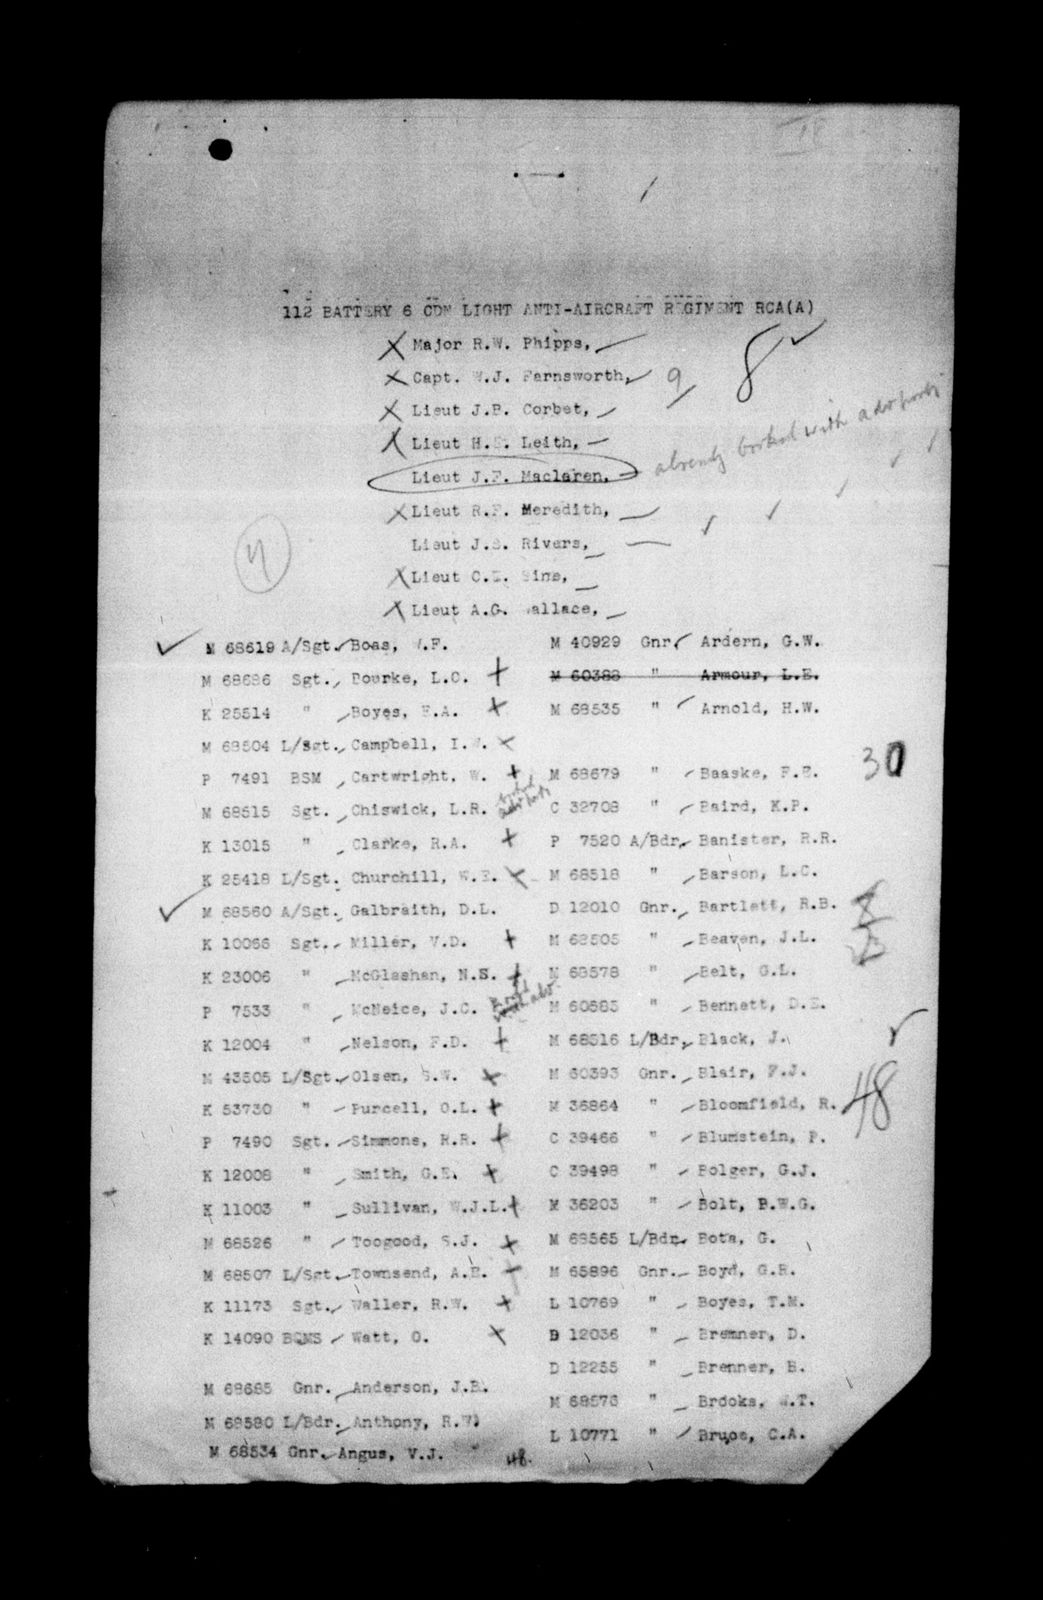 112 BATTERY 6 CDN LIGHT ANTI-AIRCRAFT REGIMENT RCA(A)
Major R.W. Phipps,
Capt. W.J. Farnsworth,
9
8
Lieut J.B. Corbet,
Lieut H.S. Leith,
Lieut J.F. Maclaren,
already booked with adv party
Lieut R.F. Meredith,
Lieut J.S. Rivers,
Lieut C.E. Sine,
Lieut A.G. Wallace,
M 68619 A/Sgt. Boas, W.F.
M 68686 Sgt. Bourke, L.C.
K 25514 " Boyes, F.A.
M 68504 L/Sgt. Campbell, I.W.
P 7491 BSM Cartwright, W.
M 68515 Sgt. Chiswick, L.R.
K 13015 " Clarke, R.A.
K 25418 L/Sgt. Churchill, W.E.
M 68560 A/Sgt. Galbraith, D.L.
K 10066 Sgt. Miller, V.D.
K 23006 " McGlashan, N.S.
P 7533 " McNeice, J.C.
K 12004 " Nelson, F.D.
M 43505 L/Sgt. Olsen, S.W.
K 53730 " Purcell, O.L.
P 7490 Sgt. Simmons, R.R.
K 12008 " Smith, G.E.
K 11003 " Sullivan, W.J.L.
M 68526 " Toogood, S.J.
M 68507 L/Sgt. Townsend, A.E.
K 11173 Sgt. Waller, R.W.
K 14090 BQMS Watt, O.
M 68685 Gnr. Anderson, J.B.
M 68580 L/Bdr. Anthony, R.W.
M 68534 Gnr. Angus, V.J.
M 40929 Gnr. Ardern, G.W.
M 60388 " Armour, L.E.
M 68535 " Arnold, H.W.
30
M 68679 " Baaske, F.E.
C 32708 " Baird, K.P.
P 7520 A/Bdr. Banister, R.R.
M 68518 " Barson, L.C.
D 12010 Gnr. Bartlett, R.B.
M 68505 " Beaven, J.L.
M 68578 " Belt, G.L.
M 60685 " Bennett, D.E.
M 68516 L/Bdr. Black, J.
M 60393 Gnr. Blair, F.J.
M 36864 " Bloomfield, R.
48
C 39466 " Blumstein, P.
C 39498 " Bolger, G.J.
M 36203 " Bolt, B.W.G.
M 68565 L/Bdr. Bota, G.
M 65896 Gnr. Boyd, G.R.
L 10769 " Boyes, T.M.
B 12036 " Bremner, D.
D 12255 " Brenner, B.
M 68576 " Brooks, W.T.
L 10771 " Bruce, C.A.
48